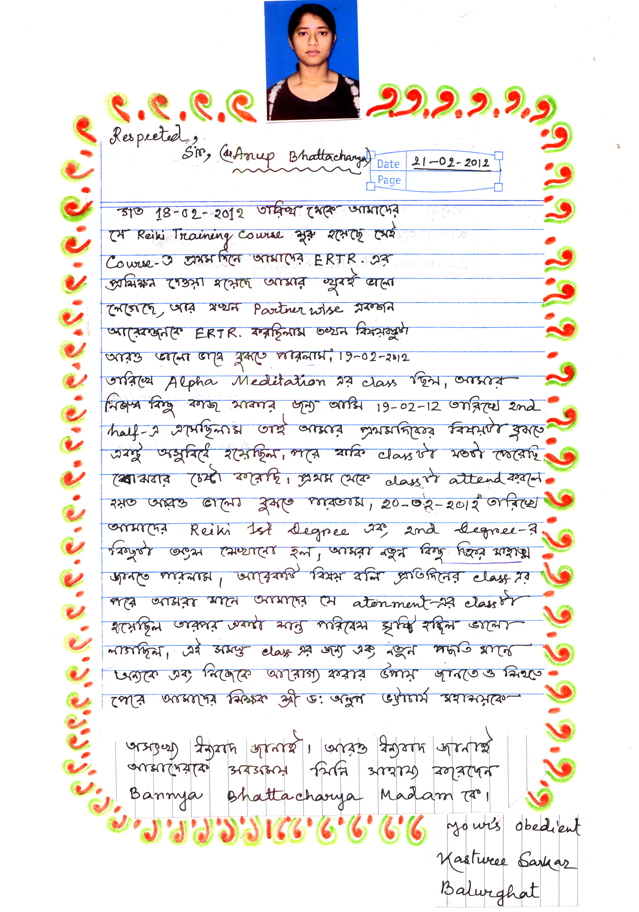 Respected,
Sir, (Dr Anup Bhattacharya)
Date 21-02-2012
Page
গত 18-02-2012 তারিখ থেকে আমাদের
যে Reiki Training Course শুরু হয়েছে সেই
Course-এ প্রথমদিনে আমাদের ERTR. এর
প্রশিক্ষন দেওয়া হয়েছে আমার খুবই ভালো
লেগেছে, আর যখন Partner wise একজন
আরেকজনকে ERTR. করছিলাম তখন বিষয়বস্তুটা
আরও ভালো ভাবে বুঝতে পারলাম, 19-02-2012
তারিখে Alpha Meditation এর class ছিল, আমার
নিজস্ব কিছু কাজ থাকার জন্য আমি 19-02-12 তারিখে 2nd
half-এ এসেছিলাম তাই আমার প্রথমদিকের বিষয়টা বুঝতে
একটু অসুবিধে হয়েছিল, পরে বাকি classটা যতটা পেরেছি
বোঝবার চেষ্টা করেছি। প্রথম থেকে classটা attend করলে
হয়ত আরও ভালো বুঝতে পারতাম, 20-02-2012 তারিখে
আমাদের Reiki 1st Degree এবং 2nd Degree-র
কিছুটা অংশ শেখানো হল, আমরা নতুন কিছু চিহ্নের মাহাত্ম্য
জানতে পারলাম, আরেকটি বিষয় বলি প্রতিদিনের class এর
পরে আমরা মানে আমাদের যে atonment-এর classটা
হয়েছিল তারপর একটা শান্ত পরিবেশ সৃষ্টি হচ্ছিল ভালো
লাগছিল, এই সমস্ত class এর জন্য এবং নতুন পদ্ধতি মানে
অন্যকে এবং নিজেকে আরোগ্য করার উপায় জানতে ও শিখতে
পেরে আমাদের শিক্ষক শ্রী ডঃ অনুপ ভট্টাচার্য মহাশয়কে
অসংখ্য ধন্যবাদ জানাই। আরও ধন্যবাদ জানাই
আমাদেরকে সবসময় যিনি সাহায্য করেছেন
Bannya Bhattacharya Madam কে।
Your's obedient
Kasturee Sarkar
Balurghat